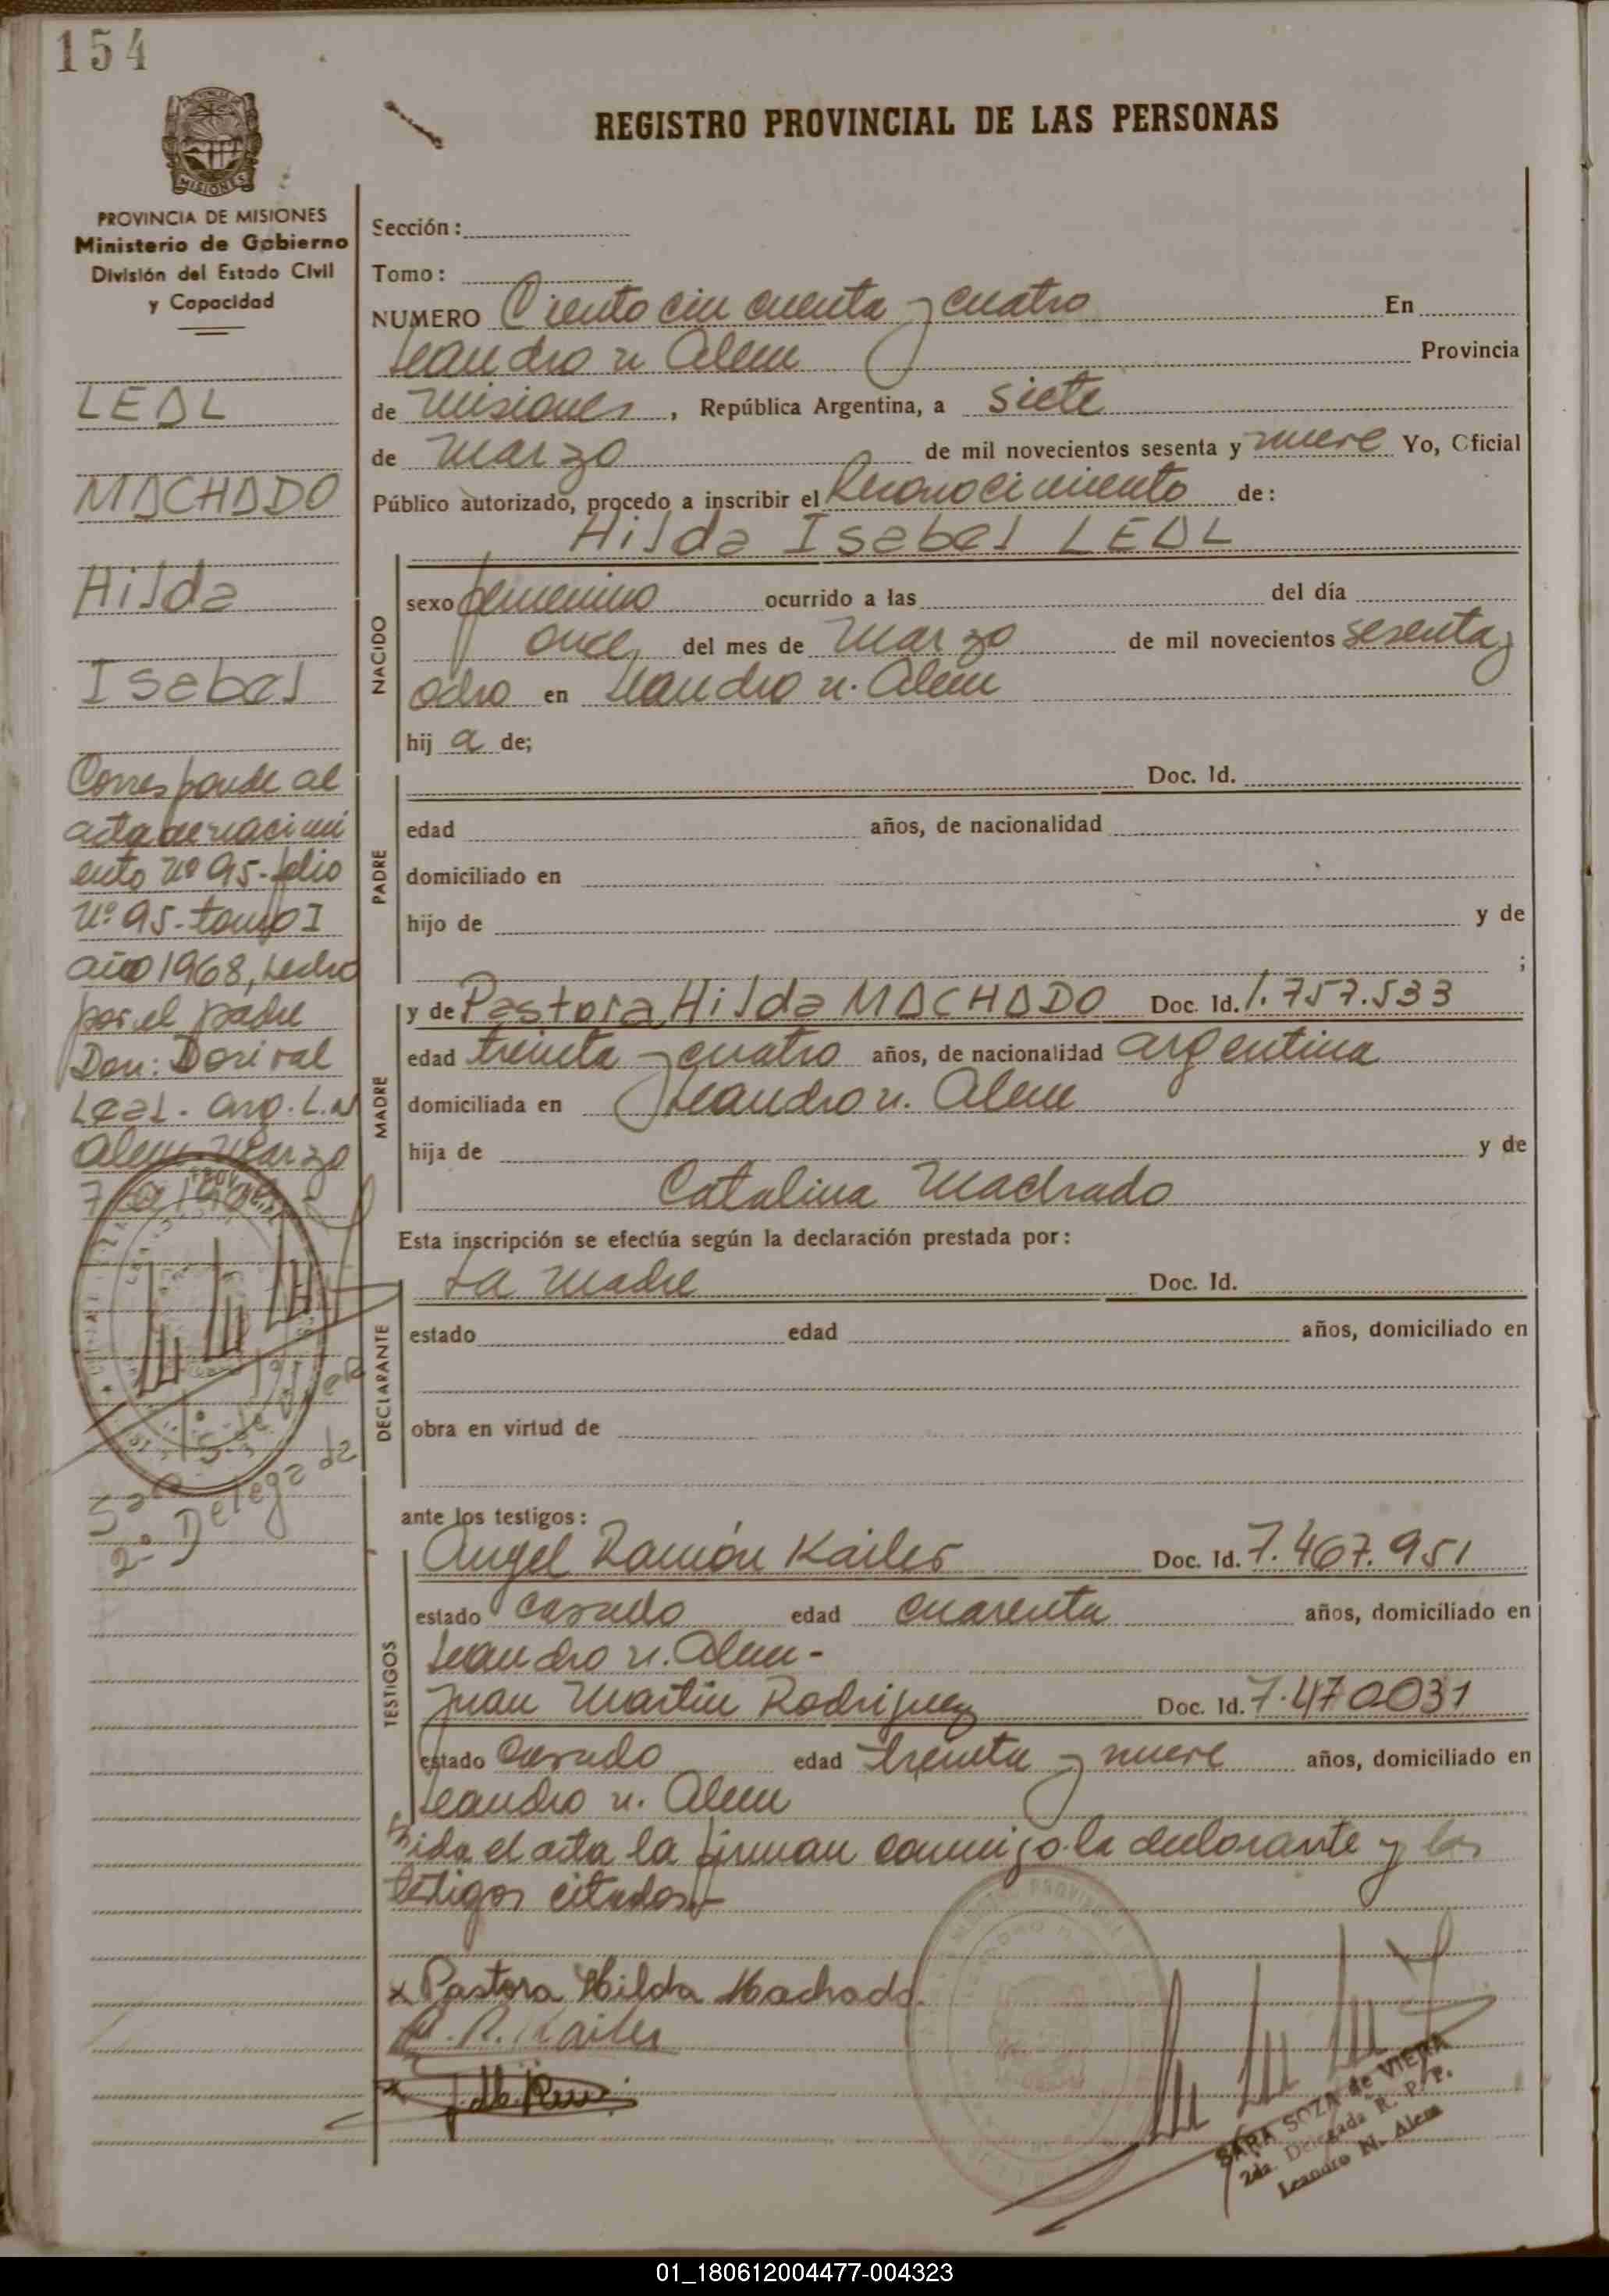 154
REGISTRO PROVINCIAL DE LAS PERSONAS
MISIONES
PROVINCIA DE MISIONES
Ministerio de Gobierno
División del Estado Civil
y Capacidad
LEAL
MACHADO
Hilda
Isabel
Corresponde al
acta de nacimi
ento nº 95-folio
nº 95-tomo I
año 1968, hecho
por el padre
Don: Dorival
Leal. arg. L.N
Alem. Marzo
2º Delegada
Sección:
Tomo:
NUMERO Ciento cincuenta y cuatro En
Leandro n Alem Provincia
de Misiones, República Argentina, a siete
de Marzo de mil novecientos sesenta y nueve Yo, Oficial
Público autorizado, procedo a inscribir el Reconocimiento de:
Hilda Isabel LEAL
NACIDO
sexo femenino ocurrido a las del día
once, del mes de Marzo de mil novecientos sesenta y
ocho en Leandro n. Alem
hij a de;
PADRE
Doc. Id.
edad años, de nacionalidad
domiciliado en
hijo de y de
;
MADRE
y de Pastora Hilda MACHADO Doc. Id. 1.757.533
edad treinta y cuatro años, de nacionalidad argentina
domiciliada en Leandro n. Alem
hija de y de
Catalina Machado
Esta inscripción se efectúa según la declaración prestada por:
DECLARANTE
La Madre Doc. Id.
estado edad años, domiciliado en
obra en virtud de
ante los testigos:
TESTIGOS
Angel Ramón Kailer Doc. Id. 7.467.951
estado casado edad cuarenta años, domiciliado en
Leandro n. Alem-
Juan Martin Rodriguez Doc. Id. 7.470031
estado casado edad treinta y nueve años, domiciliado en
Leandro n. Alem
el acta la firman conmigo la declarante y los
testigos citados.-
x Pastora Hilda Machado.
A. R. Kailer
SARA SOZA de VIERA
2da. Delegada R. P. P.
Leandro N. Alem
01_180612004477-004323